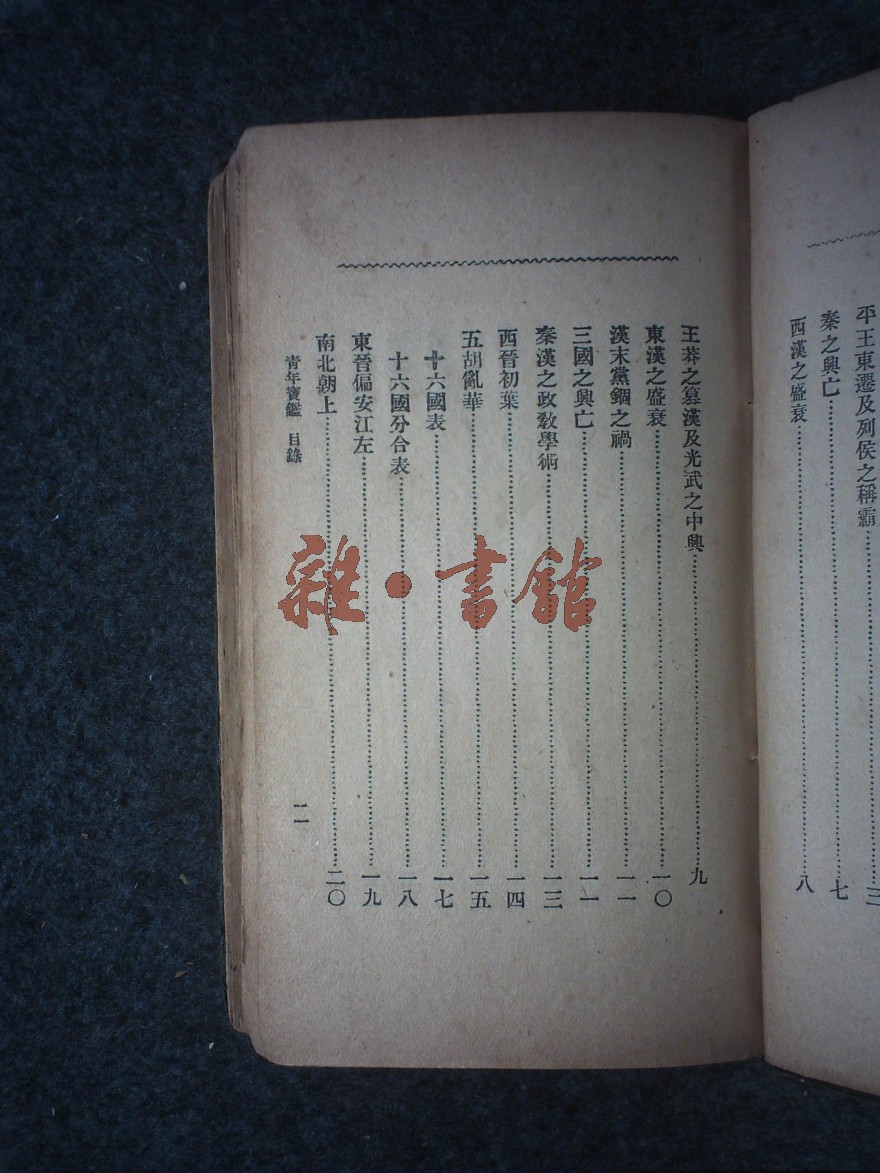 平王東遷及列侯之稱霸……三
秦之興亡……七
西漢之盛衰……八
王莽之篡漢及光武之中興……九
東漢之盛衰……一〇
漢末黨錮之禍……一一
三國之興亡……一二
秦漢之政敎學術……一三
西晉初葉……一四
五胡亂華……一五
十六國表……一七
十六國分合表……一八
東晉偏安江左……一九
南北朝上……二〇
靑年寶鑑 目錄
二
雜·書館